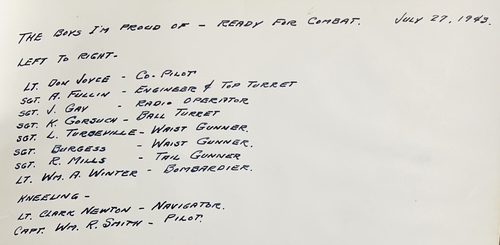 THE BOYS I'M PROUD OF - READY FOR COMBAT. JULY 27, 1943.
LEFT TO RIGHT-
LT. DON JOYCE - CO-PILOT
SGT. A. FULLIN - ENGINEER & TOP TURRET
SGT. J. GAY - RADIO OPERATOR
SGT. K. GORSUCH - BALL TURRET
SGT. L. TURBEVILLE - WAIST GUNNER.
SGT. BURGESS - WAIST GUNNER.
SGT. R. MILLS - TAIL GUNNER
LT. WM. A. WINTER - BOMBARDIER.
KNEELING -
LT. CLARK NEWTON - NAVIGATOR.
CAPT. WM. R. SMITH - PILOT.